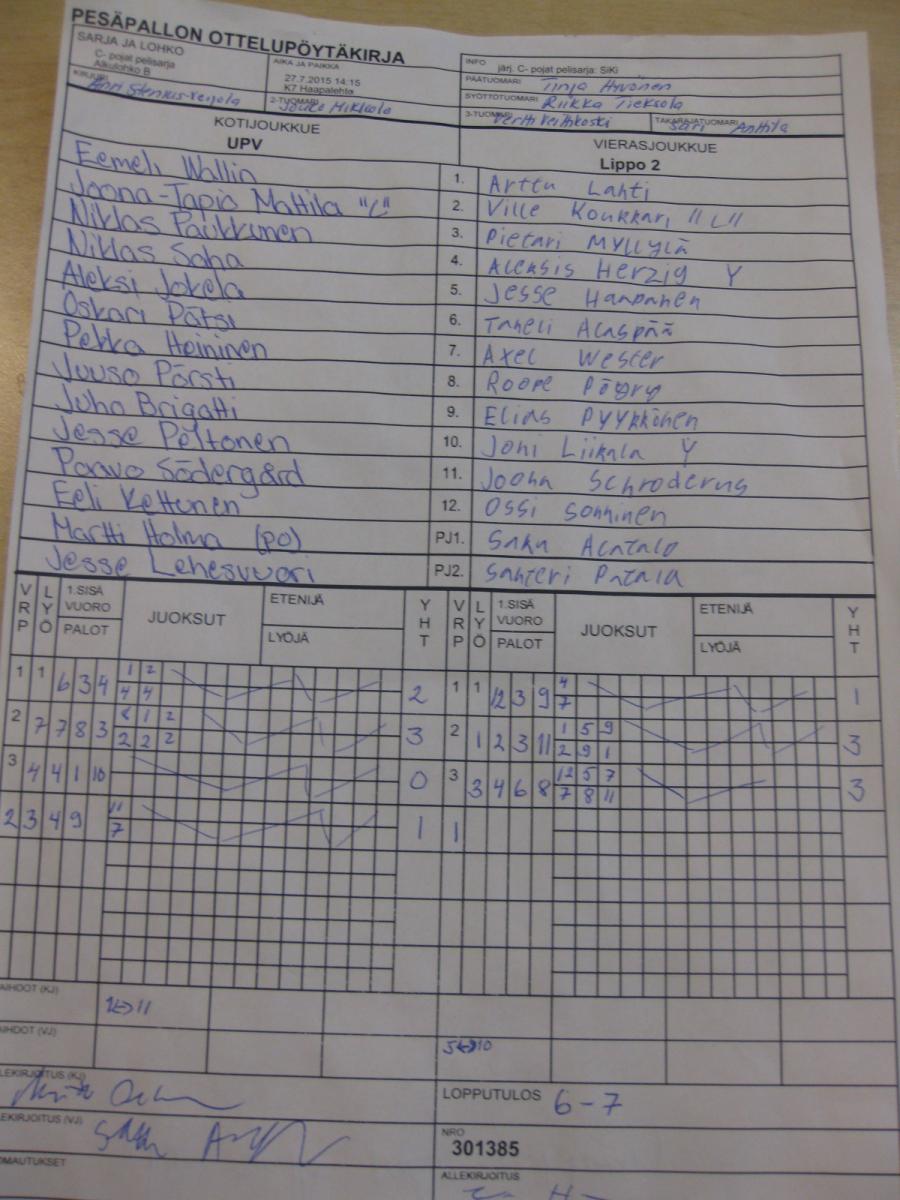 PESÄPALLON OTTELUPÖYTÄKIRJA
SARJA JA LOHKO
C- pojat pelisarja
Alkulohko B
AIKA JA PAIKKA
27.7.2015 14:15
K7 Haapalehto
INFO
järj. C- pojat pelisarja: SiKi
PÄÄTUOMARI Tinja Hyvönen
SYÖTTÖTUOMARI Riikka Tieksola
KIRJURI
2-TUOMARI Jouko Mikkola
3-TUOMARI Vertti Veithkoski
TAKARAJATUOMARI Sari Anttila
KOTIJOUKKUE
UPV
VIERASJOUKKUE
Lippo 2
Eemeli Wallin 1. Arttu Lahti
Joona-Tapio Mattila "L" 2. Ville Koukkari "L"
Niklas Paukkunen 3. Pietari Myllylä
Niklas Saha 4. Aleksis Herzig Y
Aleksi Jokela 5. Jesse Haapanen
Oskari Pätsi 6. Taneli Alaspää
Pekka Heininen 7. Axel Wester
Juuso Pörsti 8. Roope Pöyry
Juho Brigatti 9. Elias Pyykkönen
Jesse Peltonen 10. Joni Liikala Y
Paavo Södergård 11. Joona Schroderus
Eeli Kettunen 12. Ossi Sonninen
Martti Holma (PO) PJ1. Saku Alatalo
Jesse Lehesvuori PJ2. Santeri Patala
VRP LYÖ 1.SISÄ VUORO PALOT JUOKSUT ETENIJÄ LYÖJÄ YHT VRP LYÖ 1.SISÄ VUORO PALOT JUOKSUT ETENIJÄ LYÖJÄ YHT
1 1 6 3 4 1 2 2 1 1 12 3 9 4 1
4 4 7
2 7 7 8 3 1 2 3 2 1 2 3 11 1 5 9 3
2 2 2 2 9 1
3 4 4 1 10 0 3 3 4 6 8 12 5 7 3
7 8 11
2 3 4 9 11 1 1
7
AIHDOT (KJ) 2<->11
AIHDOT (VJ) 5<->10
LEKIRJOITUS (KJ)
LOPPUTULOS 6-7
LEKIRJOITUS (VJ)
NRO
301385
OMAUTUKSET
ALLEKIRJOITUS